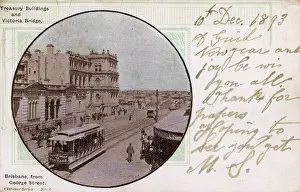 Treasury Buildings
and
Victoria Bridge,
10th Dec. 1893
New year and
joy be wi
you all
Thanks for
papers.
Hoping to
see you yet
M. S.
Brisbane, from
George Street.